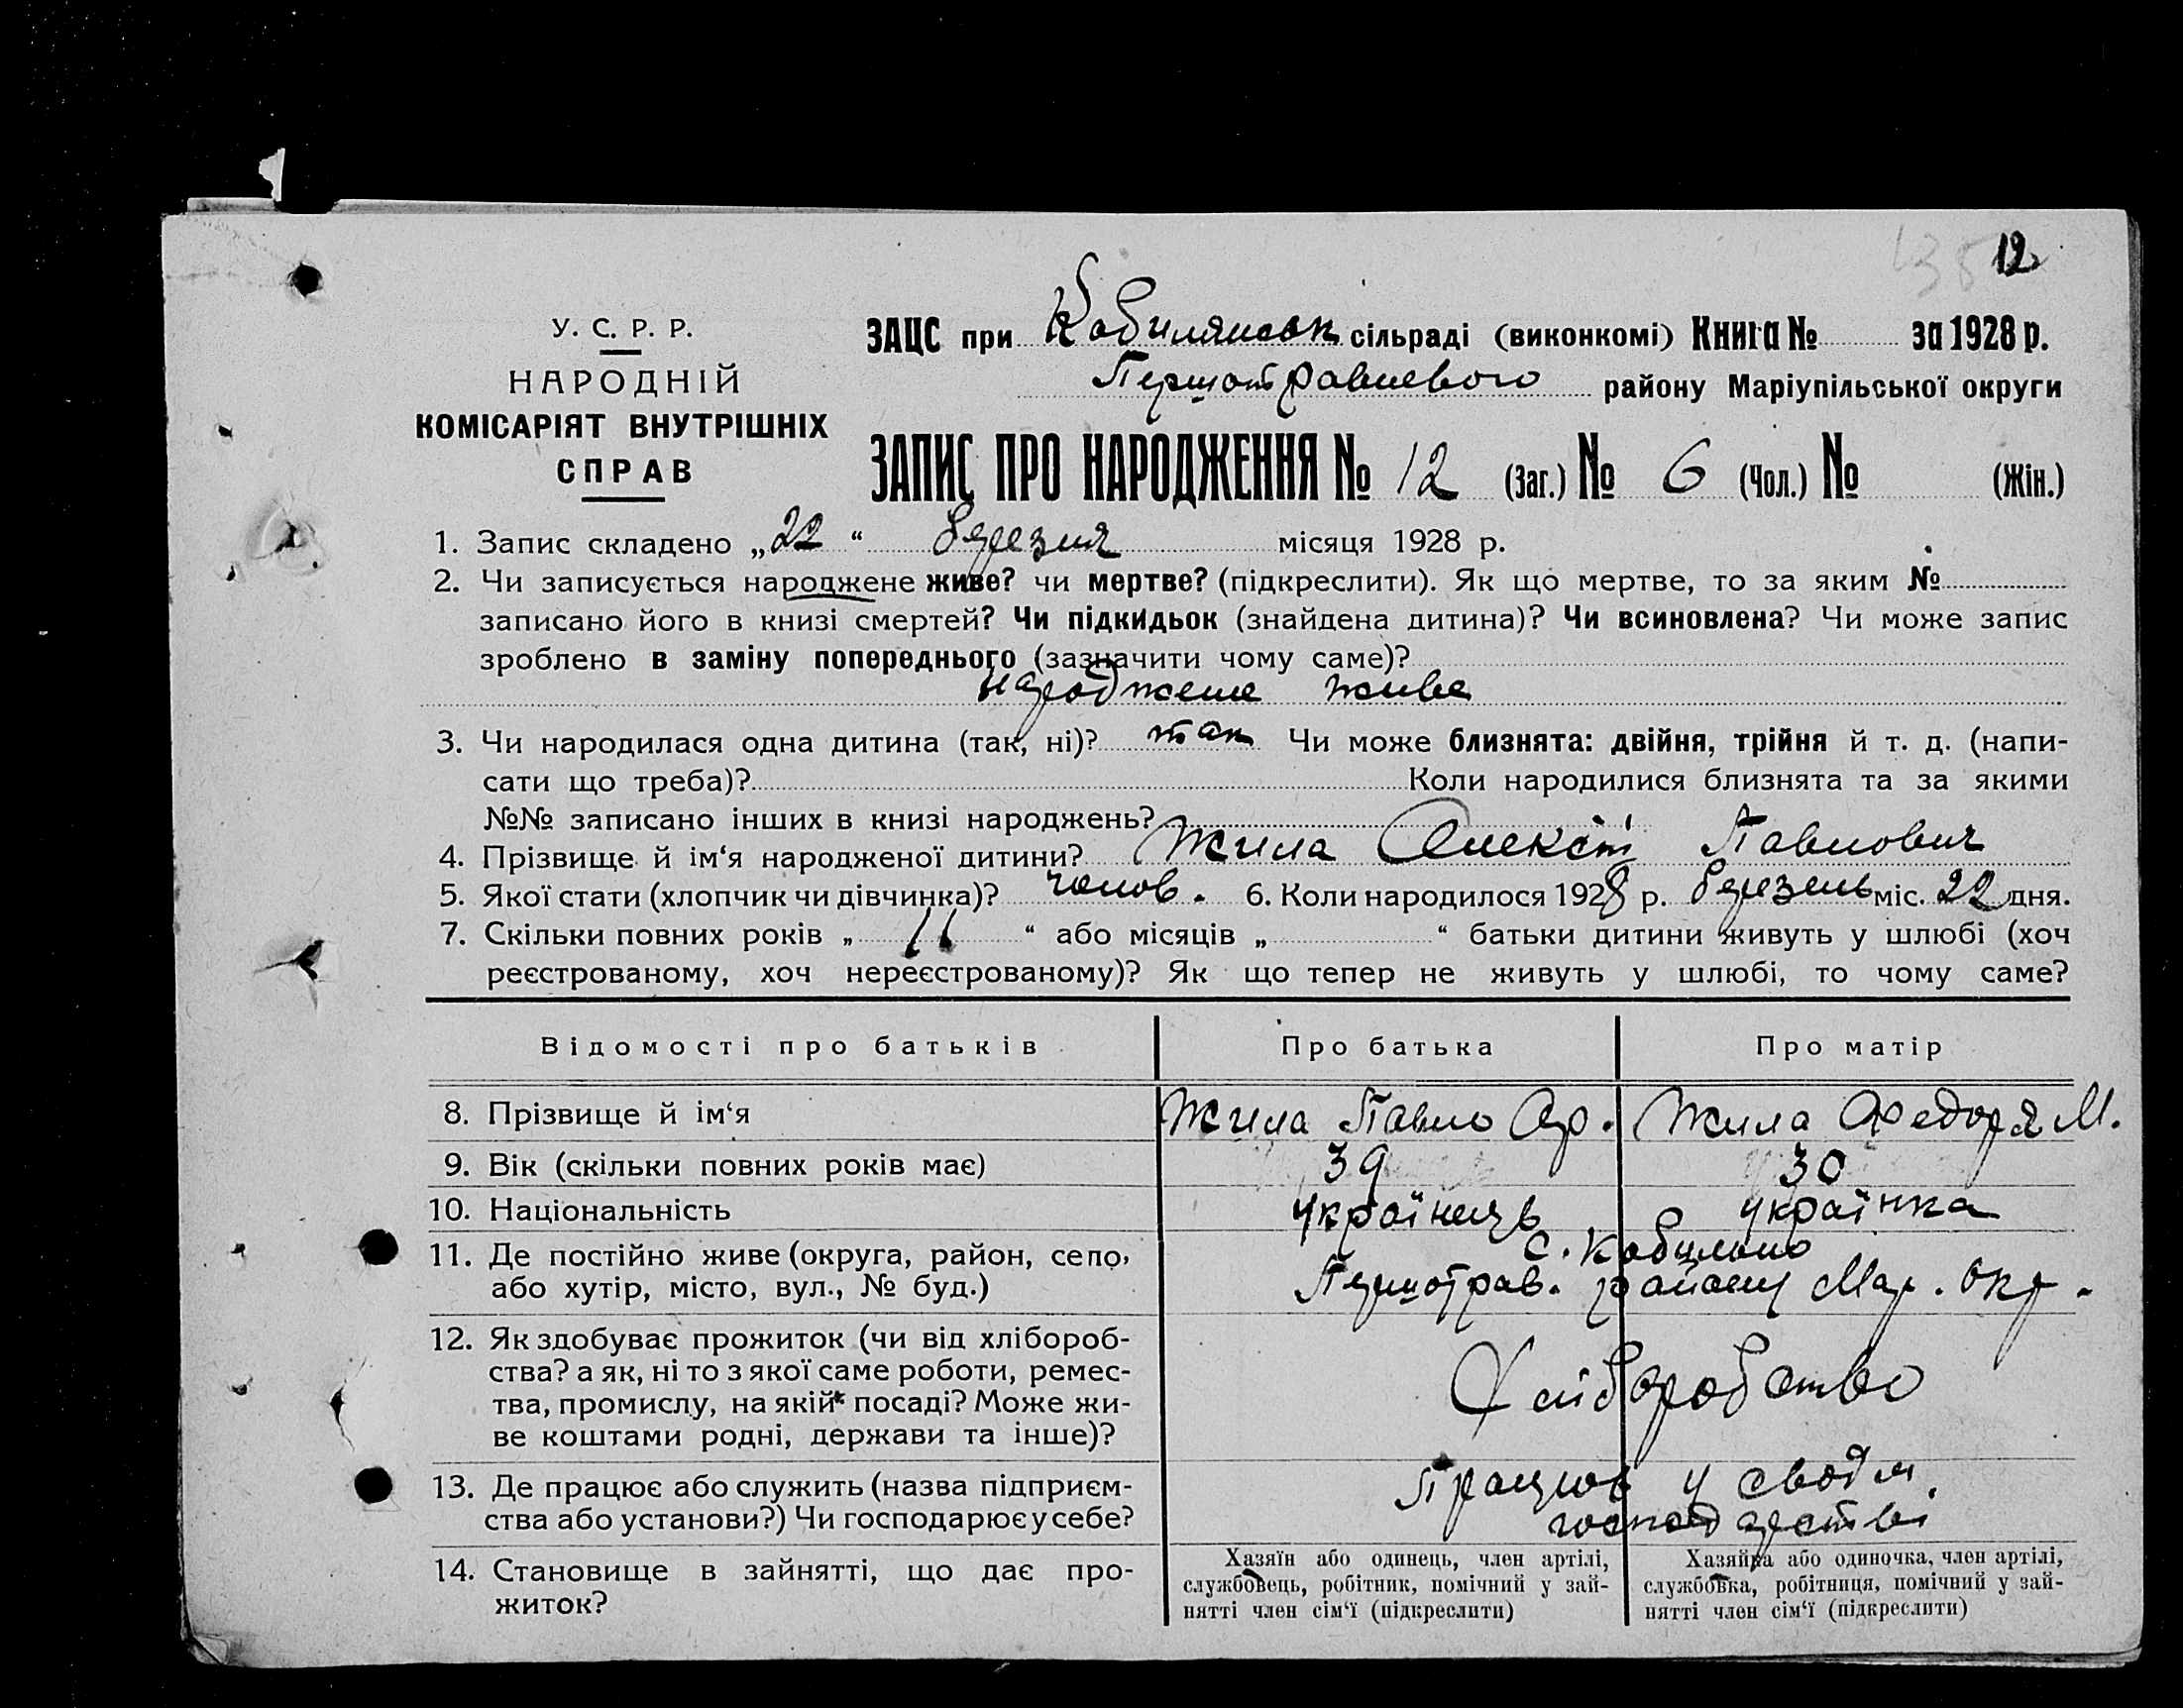 12
У. С. Р. Р.
НАРОДНІЙ
КОМІСАРІЯТ ВНУТРІШНІХ
СПРАВ
ЗАЦС при Кобилянськ сільраді (виконкомі) Книга № за 1928 р.
Першотравневого району Маріупільської округи
ЗАПИС ПРО НАРОДЖЕННЯ № 12 (Заг.) № 6 (Чол.) № (Жін.)
1. Запис складено „22“ березня місяця 1928 р.
2. Чи записується народжене живе? чи мертве? (підкреслити). Як що мертве, то за яким №
записано його в книзі смертей? Чи підкидьок (знайдена дитина)? Чи всиновлена? Чи може запис
зроблено в заміну попереднього (зазначити чому саме)?
народжене живе
3. Чи народилася одна дитина (так, ні)? так Чи може близнята: двійня, трійня й т. д. (напи-
сати що треба)? Коли народилися близнята та за якими
№№ записано інших в книзі народжень?
4. Прізвище й ім‘я народженої дитини? Жила Олексій Павлович
5. Якої стати (хлопчик чи дівчинка)? чолов. 6. Коли народилося 1928 р. березень міс. 22 дня.
7. Скільки повних років „ 11 “ або місяців „ “ батьки дитини живуть у шлюбі (хоч
реєстрованому, хоч нереєстрованому)? Як що тепер не живуть у шлюбі, то чому саме?
Відомості про батьків Про батька Про матір
8. Прізвище й ім‘я Жила Павло Жила Федора М.
9. Вік (скільки повних років має) 39 30
10. Національність українець українка
11. Де постійно живе (округа, район, село, с. Кобильно
або хутір, місто, вул., № буд.) Першотрав. району Мар. Окр.
12. Як здобуває прожиток (чи від хлібороб-
ства? а як, ні то з якої саме роботи, ремес- Хліборобство
тва, промислу, на якій посаді? Може жи-
ве коштами родні, держави та інше)?
13. Де працює або служить (назва підприєм- Працює у своїм
ства або установи?) Чи господарює у себе? господарстві
14. Становище в зайнятті, що дає про-
житок?
Хазяїн або одинець, член артілі,
службовець, робітник, помічний у зай-
нятті член сім‘ї (підкреслити)
Хазяйка або одиночка, член артілі,
службовка, робітниця, помічний у зай-
нятті член сім‘ї (підкреслити)